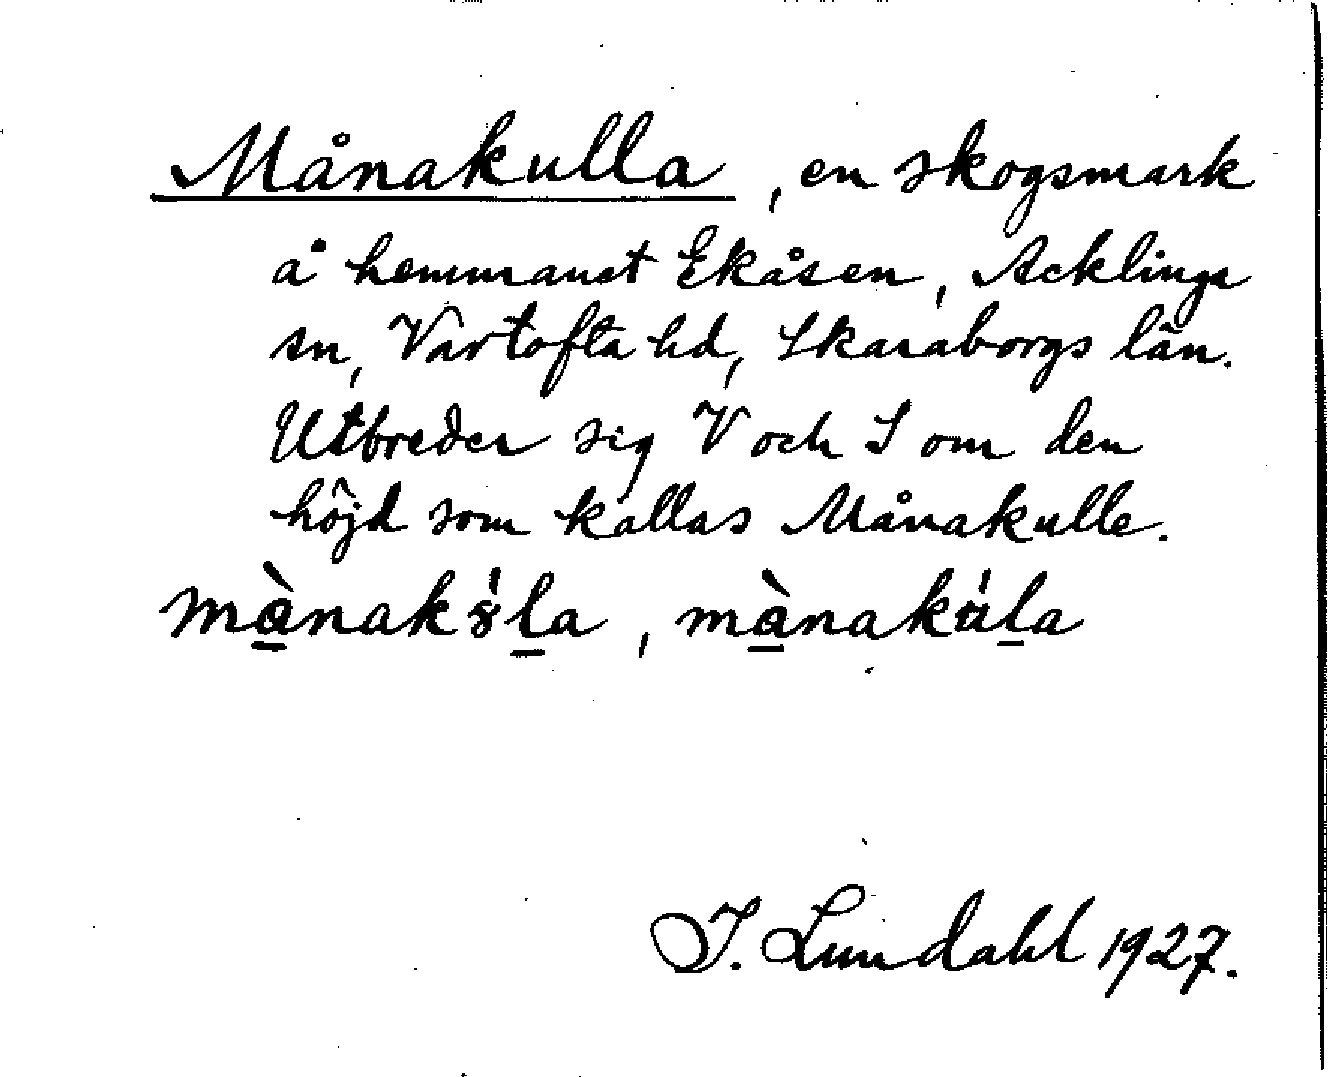 Månakulla, en skogsmark
å hemmanet Ekåsen, Acklinga
sn, Vartofta hd, Skaraborgs län.
Utbreder sig V och S om den
höjd som kallas Månakulle.
mànak la, mànaku̇la
J. Lundahl 1927.